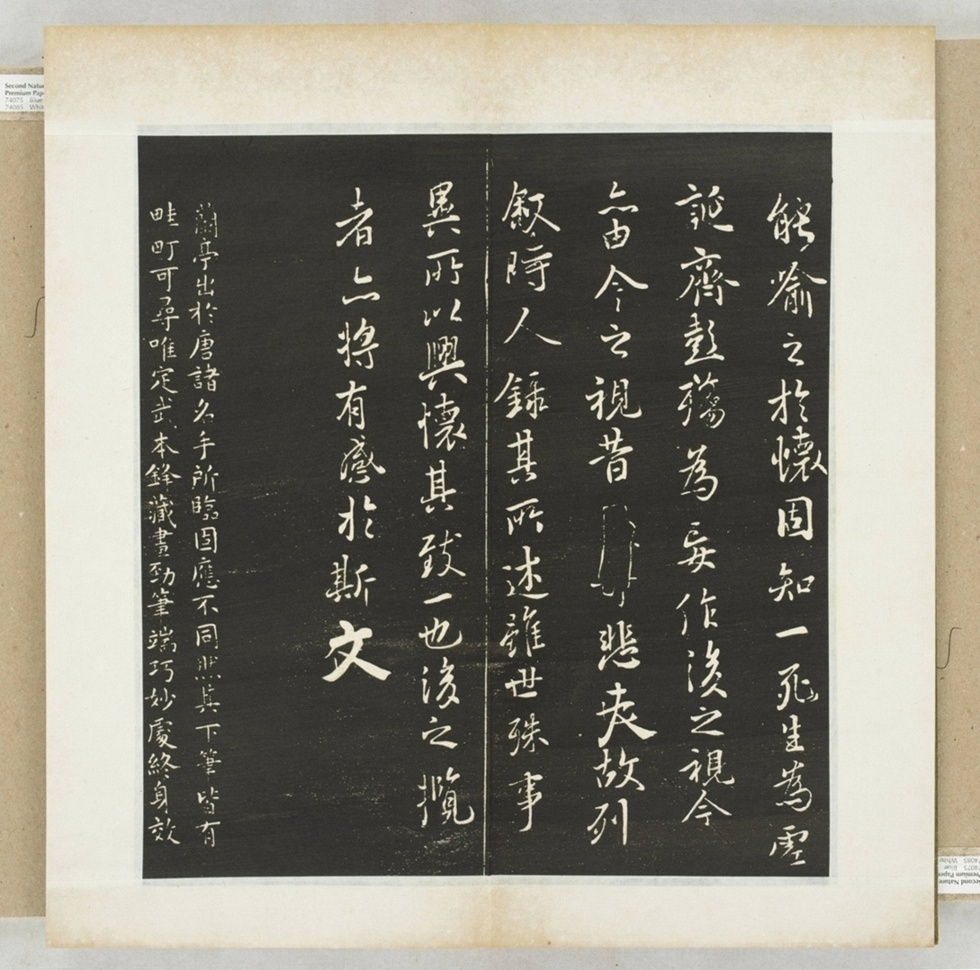 能喻之於懷固知一死生為虛
誕齊彭殤為妄作後之視今
亦由今之視昔悲夫故列
敘時人錄其所述雖世殊事
異所以興懷其致一也後之攬
者亦將有感於斯文
蘭亭出於唐諸名手所臨固應不同然其下筆皆有
畦町可尋唯定武本鋒藏畫勁筆端巧妙處終身效
Second Natur
Premium Pap
74075 Blue
74085 Whit
Second Nature
Premium Paper
74075 Blue
74085 White